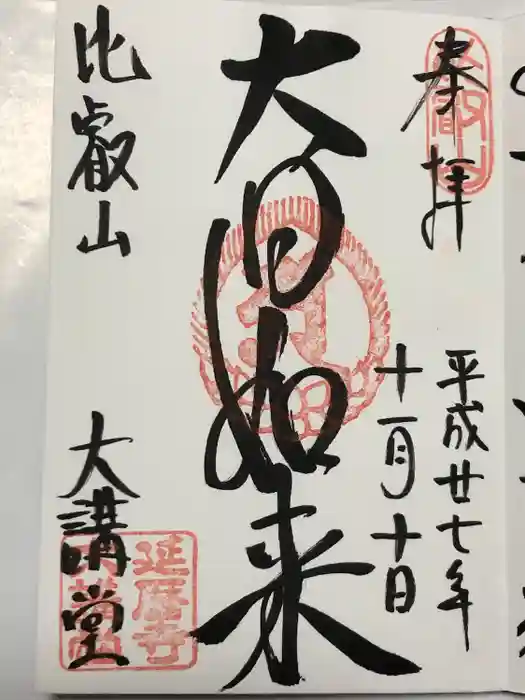 奉拝
平成廿七年
十一月十日
大日如来
比叡山
大講堂
叡山
延暦寺